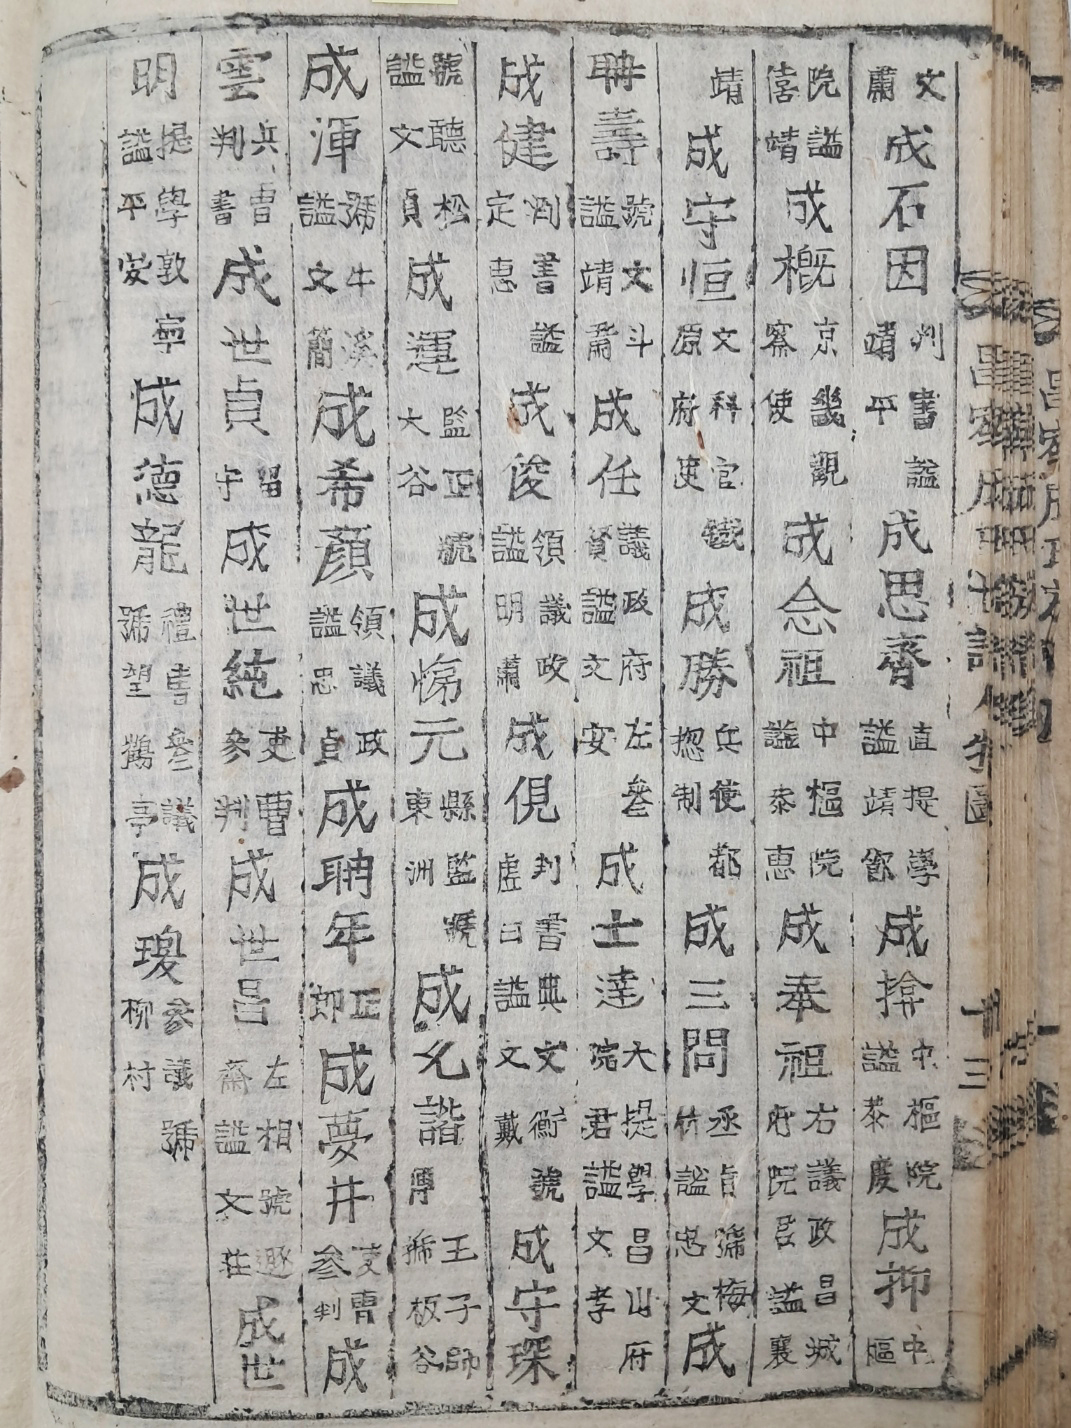 文肅成石因判書謚靖平成思齊直提學謚靖郁成揜中樞院謚恭度成抑中樞
院謚僖靖成槪京畿觀察使成念祖中樞院謚恭惠成奉祖右議政昌城府院君謚襄
靖成守恒文科官鐵原府使成勝兵使都摠制成三問丞貞號梅竹謚忠文成
聃壽號文斗謚靖肅成任議政府左參贊謚文安成士達大提學昌山府院君謚文孝
成健判書謚定惠成俊領議政謚明肅成俔判書典文衡號虛白謚文戴成守琛
號聽松謚文貞成運監正號大谷成悌元縣監號東洲成允諧王子師傅號板谷
成渾號牛溪謚文簡成希顏領議政謚忠貞成聃年正郎成夢井吏曹參判成
雲兵曹判書成世貞昌守成世純吏曹參判成世昌左相號遯齋謚文莊成世
明提學敦寧謚平安成德龍禮曹參議號望鶴亭成瑍參議號柳村
十三